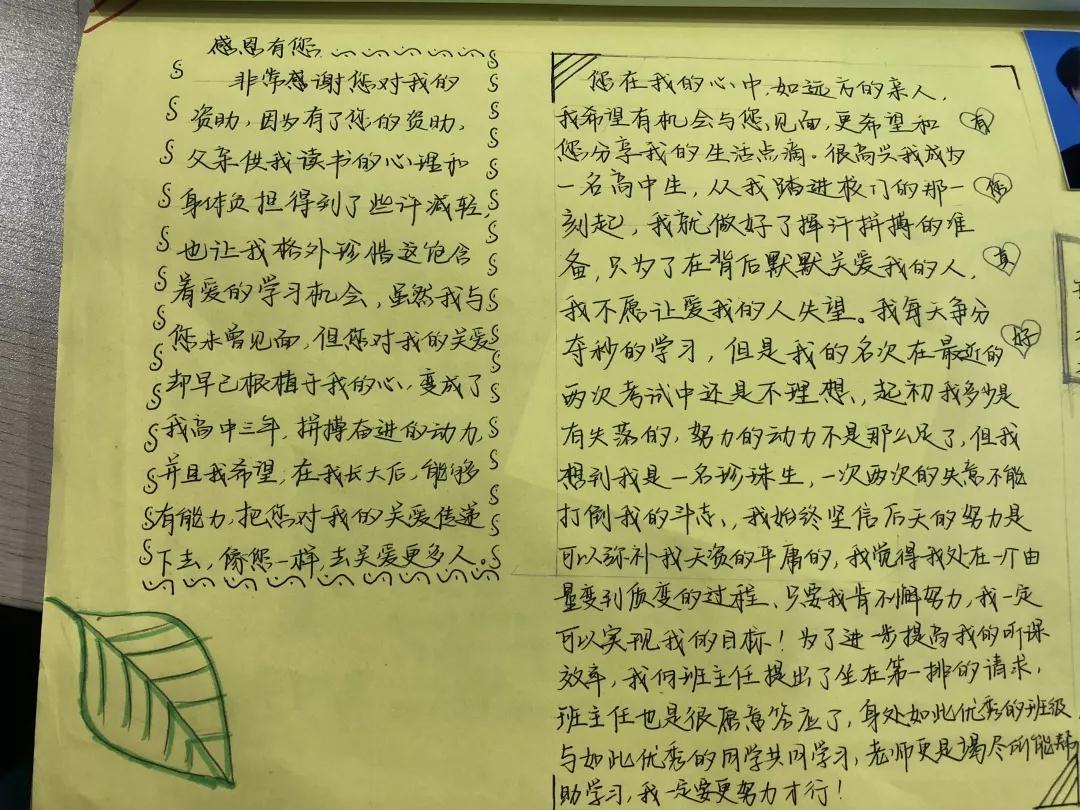 感恩有您
非常感谢您对我的
资助，因为有了您的资助，
父亲供我读书的心理和
身体负担得到了些许减轻，
也让我格外珍惜这饱含
着爱的学习机会，虽然我与
您未曾见面，但您对我的关爱
却早已根植于我的心，变成了
我高中三年，拼搏奋进的动力，
并且我希望，在我长大后，能够
有能力，把您对我的关爱传递
下去，像您一样，去关爱更多人。
您在我的心中，如远方的亲人，
我希望有机会与您见面，更希望和
您分享我的生活点滴。很高兴我成为
一名高中生，从我踏进校门的那一
刻起，我就做好了挥汗拼搏的准
备，只为了在背后默默关爱我的人，
我不愿让爱我的人失望。我每天争分
夺秒的学习，但是我的名次在最近的
两次考试中还是不理想，起初我多少是
有失落的，努力的动力不是那么足了，但我
想到我是一名珍珠生，一次两次的失意不能
打倒我的斗志，我始终坚信后天的努力是
可以弥补我天资的平庸的，我觉得我处在一个由
量变到质变的过程、只要我肯不懈努力，我一定
可以实现我的目标！为了进一步提高我的听课
效率，我向班主任提出了坐在第一排的请求，
班主任也是很愿意答应了，身处如此优秀的班级
与如此优秀的同学共同学习，老师更是竭尽所能帮
助学习，我一定要更努力才行！
有
您
真
好